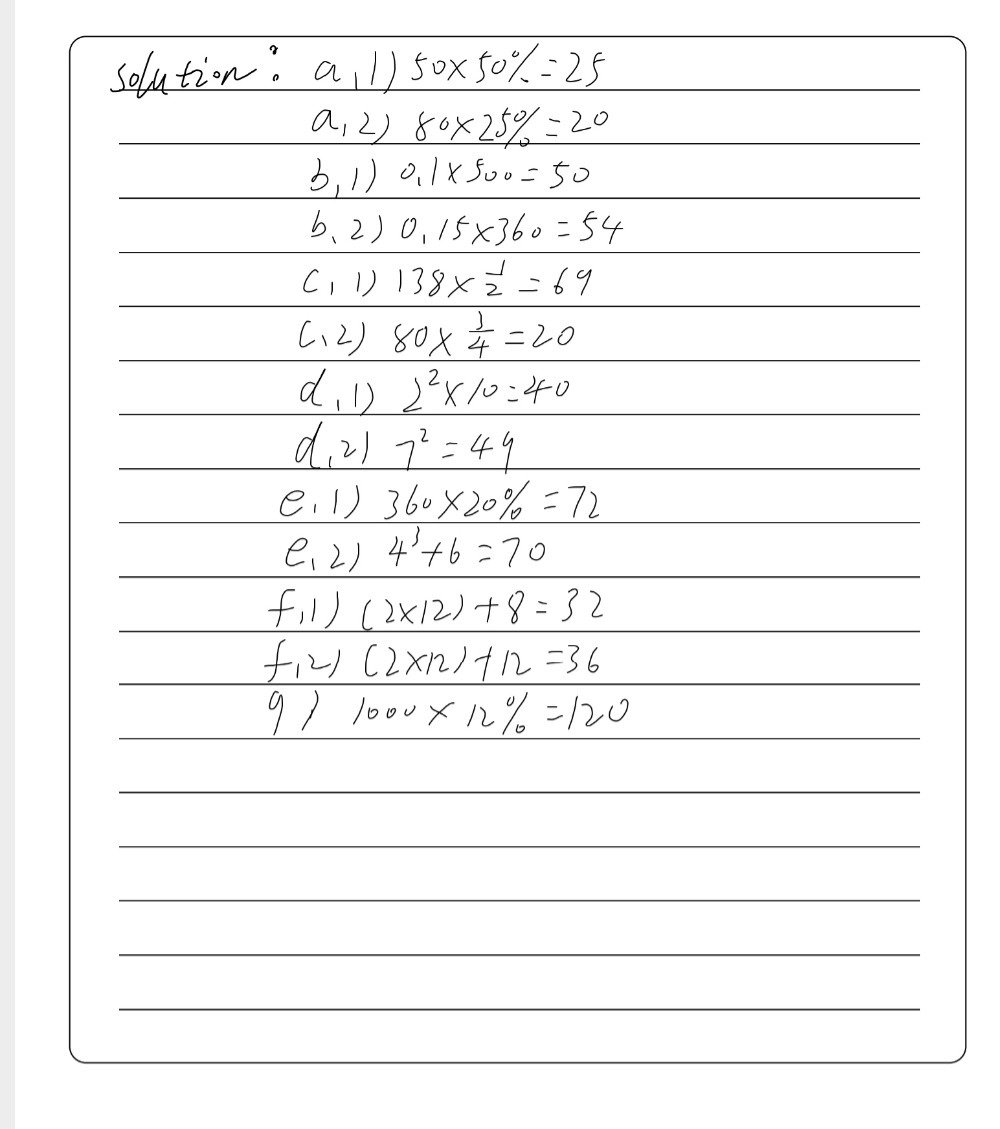 solution: a,1) 50×50%=25
a,2) 80×25%=20
b,1) 0,1×500=50
b,2) 0,15×360=54
c,1) 138×1/2=69
c,2) 80×1/4=20
d,1) 2²×10=40
d,2) 7²=49
e,1) 360×20%=72
e,2) 4³+6=70
f,1) (2×12)+8=32
f,2) (2×12)+12=36
g) 1000×12%=120